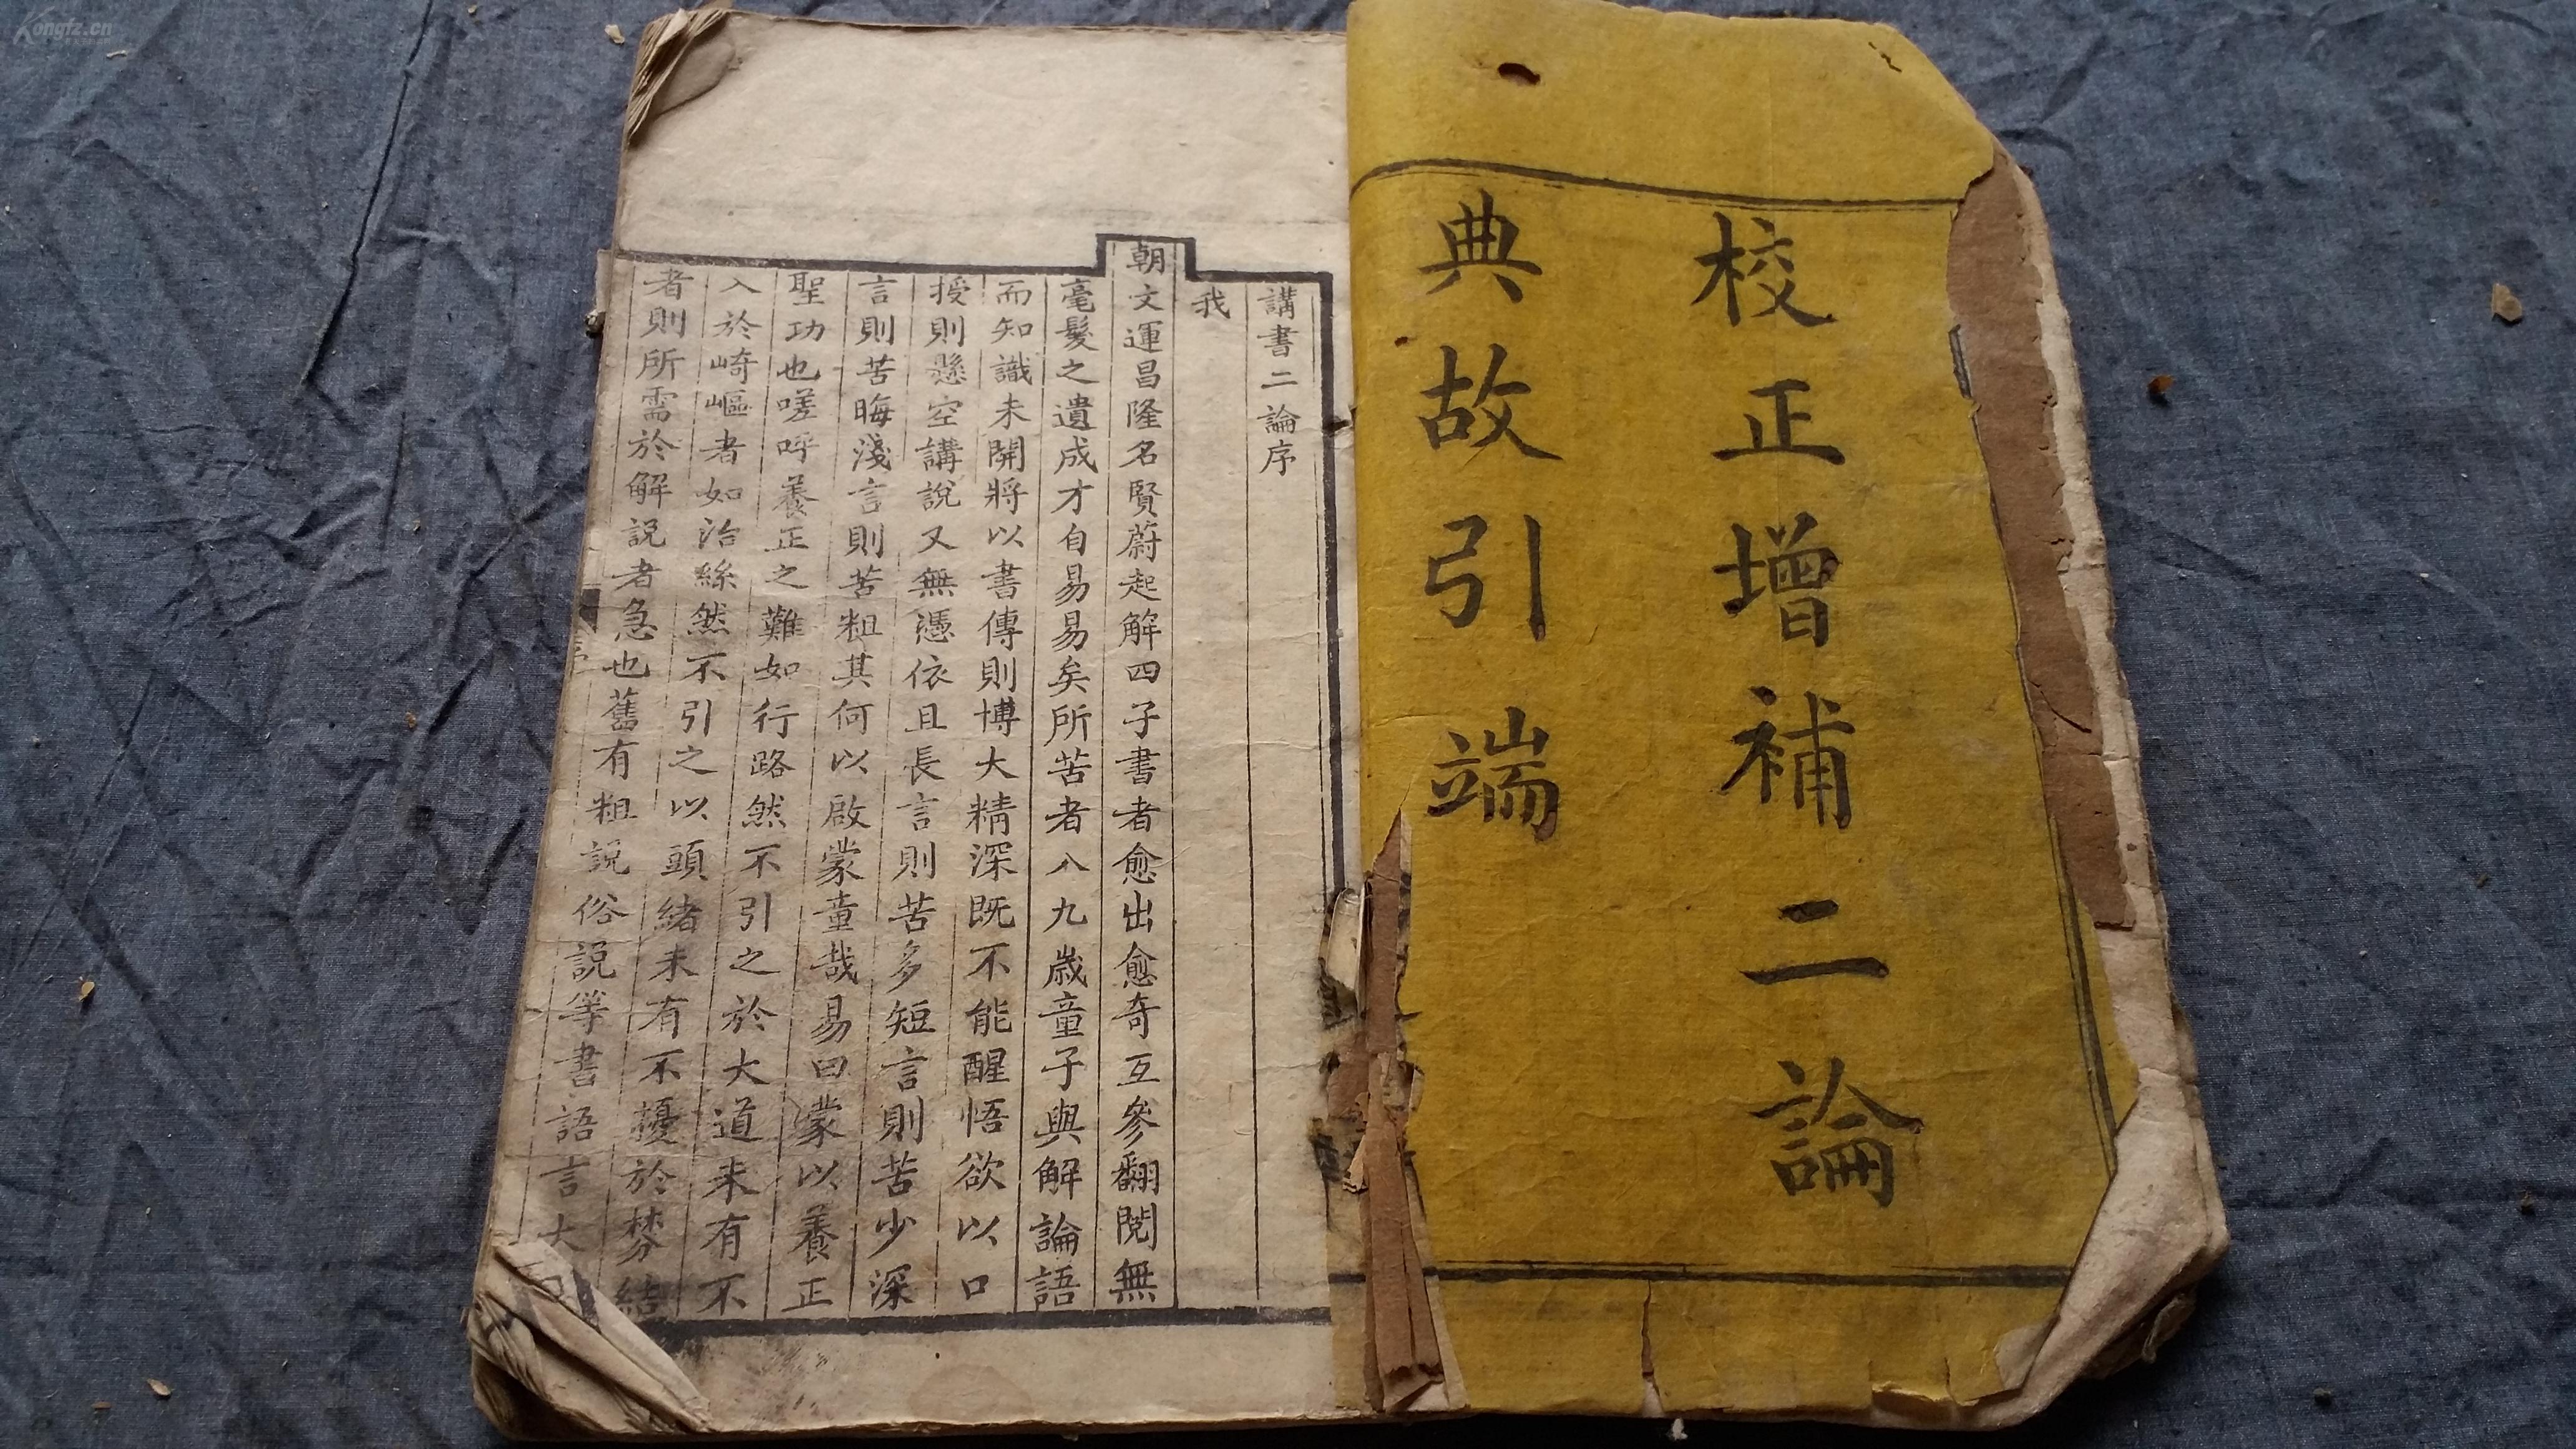 校正增補二論
典故引端
講書二論序
我
朝文運昌隆名賢蔚起解四子書者愈出愈奇互參翻閱無
毫髮之遺成才自易易矣所苦者八九歲童子與解論語
而知識未開將以書傳則博大精深既不能醒悟欲以口
授則懸空講說又無憑依且長言則苦多短言則苦少深
言則苦晦淺言則苦粗其何以啟蒙童哉易曰蒙以養正
聖功也嗟呼養正之難如行路然不引之於大道未有不
入於崎嶇者如治絲然不引之以頭緒未有不擾於棼結
者則所需於解説者急也舊有粗説俗説等書語言大
Kongfz.cn